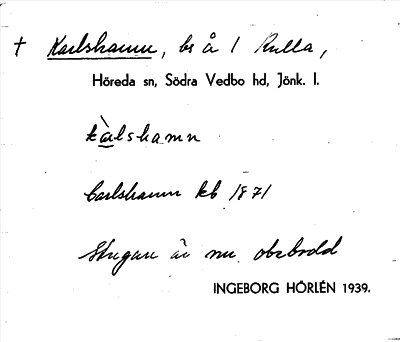 † Karlshamn, bs å 1 Rulla,
Höreda sn, Södra Vedbo hd, Jönk. l.
kàlshamn
Carlshamn kb 1871
Stugan är nu obebodd
INGEBORG HÖRLÉN 1939.